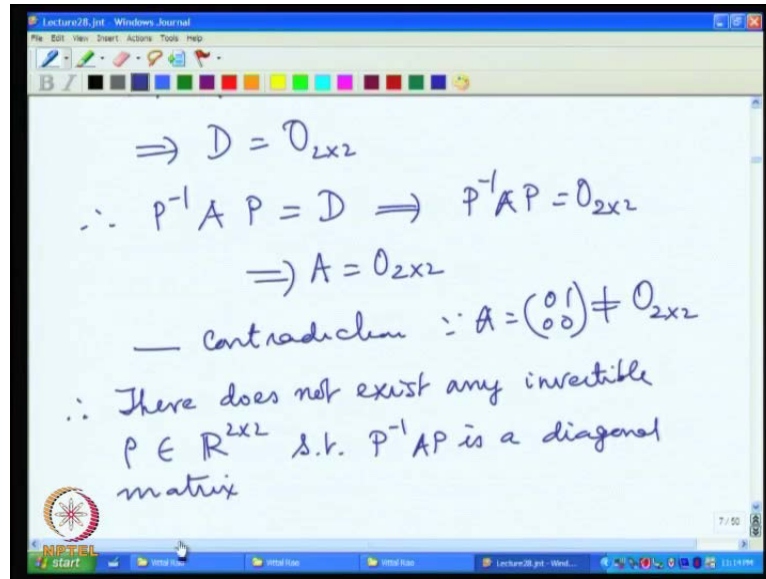 Lecture28.jnt - Windows Journal
File Edit View Insert Actions Tools Help
B I
⟹ D = O₂ₓ₂
∴ P⁻¹ A P = D ⟹ P⁻¹AP = O₂ₓ₂
⟹ A = O₂ₓ₂
— Contradiction ∵ A = (0 1 0 0) ≠ O₂ₓ₂
∴ There does not exist any invertible
P ∈ ℝ²ˣ² s.t. P⁻¹AP is a diagonal
matrix
7 / 50
NPTEL
start Vittal Rao Vittal Rao Vittal Rao Lecture28.jnt - Wind... 11:14 PM